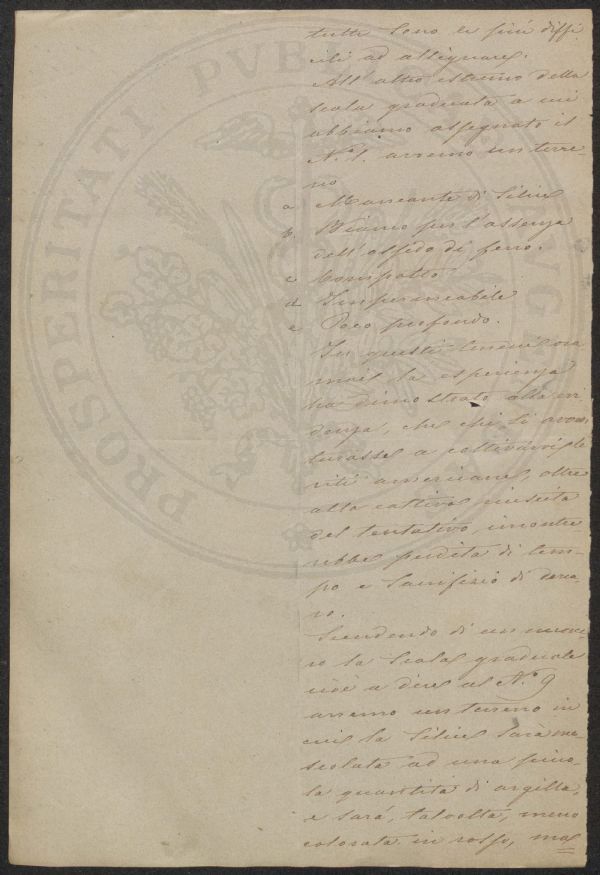 tutte sono le più diffi-
cili ad allignare.
All'altro estremo della
scala graduata a cui
abbiamo assegnato il
N.º 1. avremo un terre-
no
a Mancante di Silice
b Bianco per l'assenza
dell'ossido di ferro.
c Compatto
d Impermeabile
e Poco profondo.
In questi terreni ora
mai la esperienza
ha dimostrato alla evi
denza, che chi si avven
turasse a coltivarvi le
viti americane, oltre
alla cattiva riuscita
del tentativo, incontre-
rebbe perdita di tem-
po e Sacrifizio di dena-
ro.
Scendendo di un nume-
ro la Scala graduale
cioè a dire al N.º 9
avremo un terreno in
cui la Silice sarà me
scolata ad una picco-
la quantità di argilla,
e sarà, talvolta, meno
colorata in rosso, ma
PROSPERITATI PVB AVGE